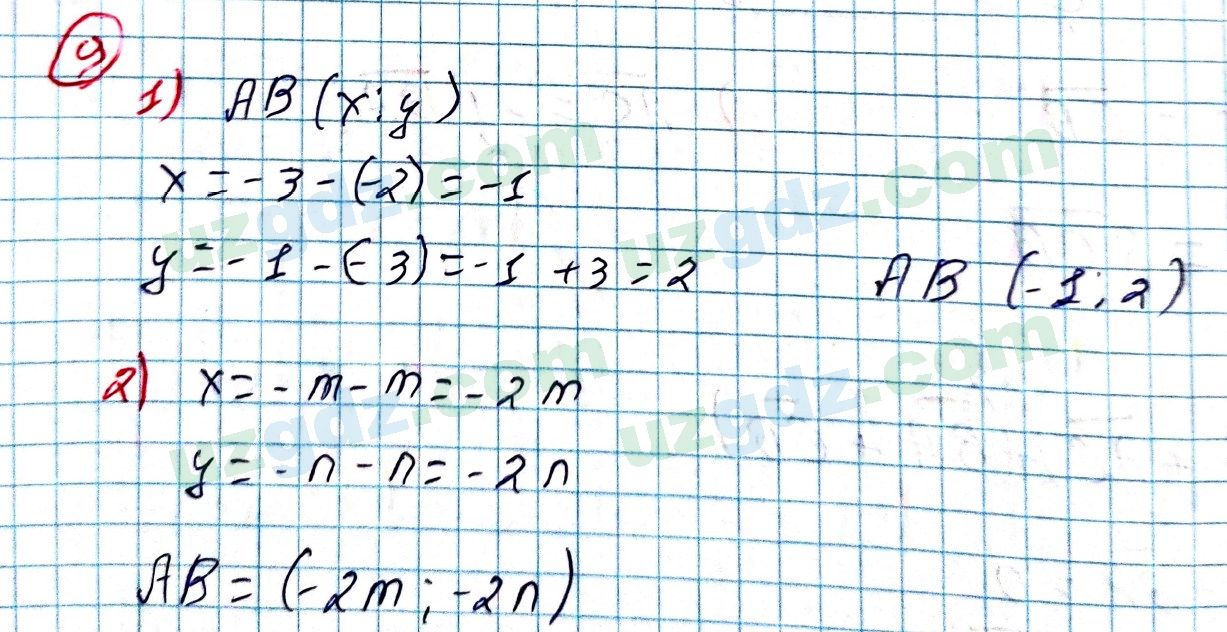 9
1) AB (x; y)
x = -3 - (-2) = -1
y = -1 - (-3) = -1 + 3 = 2
AB (-1; 2)
2) x = -m - m = -2m
y = -n - n = -2n
AB = (-2m; -2n)
uzgdz.com
uzgdz.com
uzgdz.com
uzgdz.com